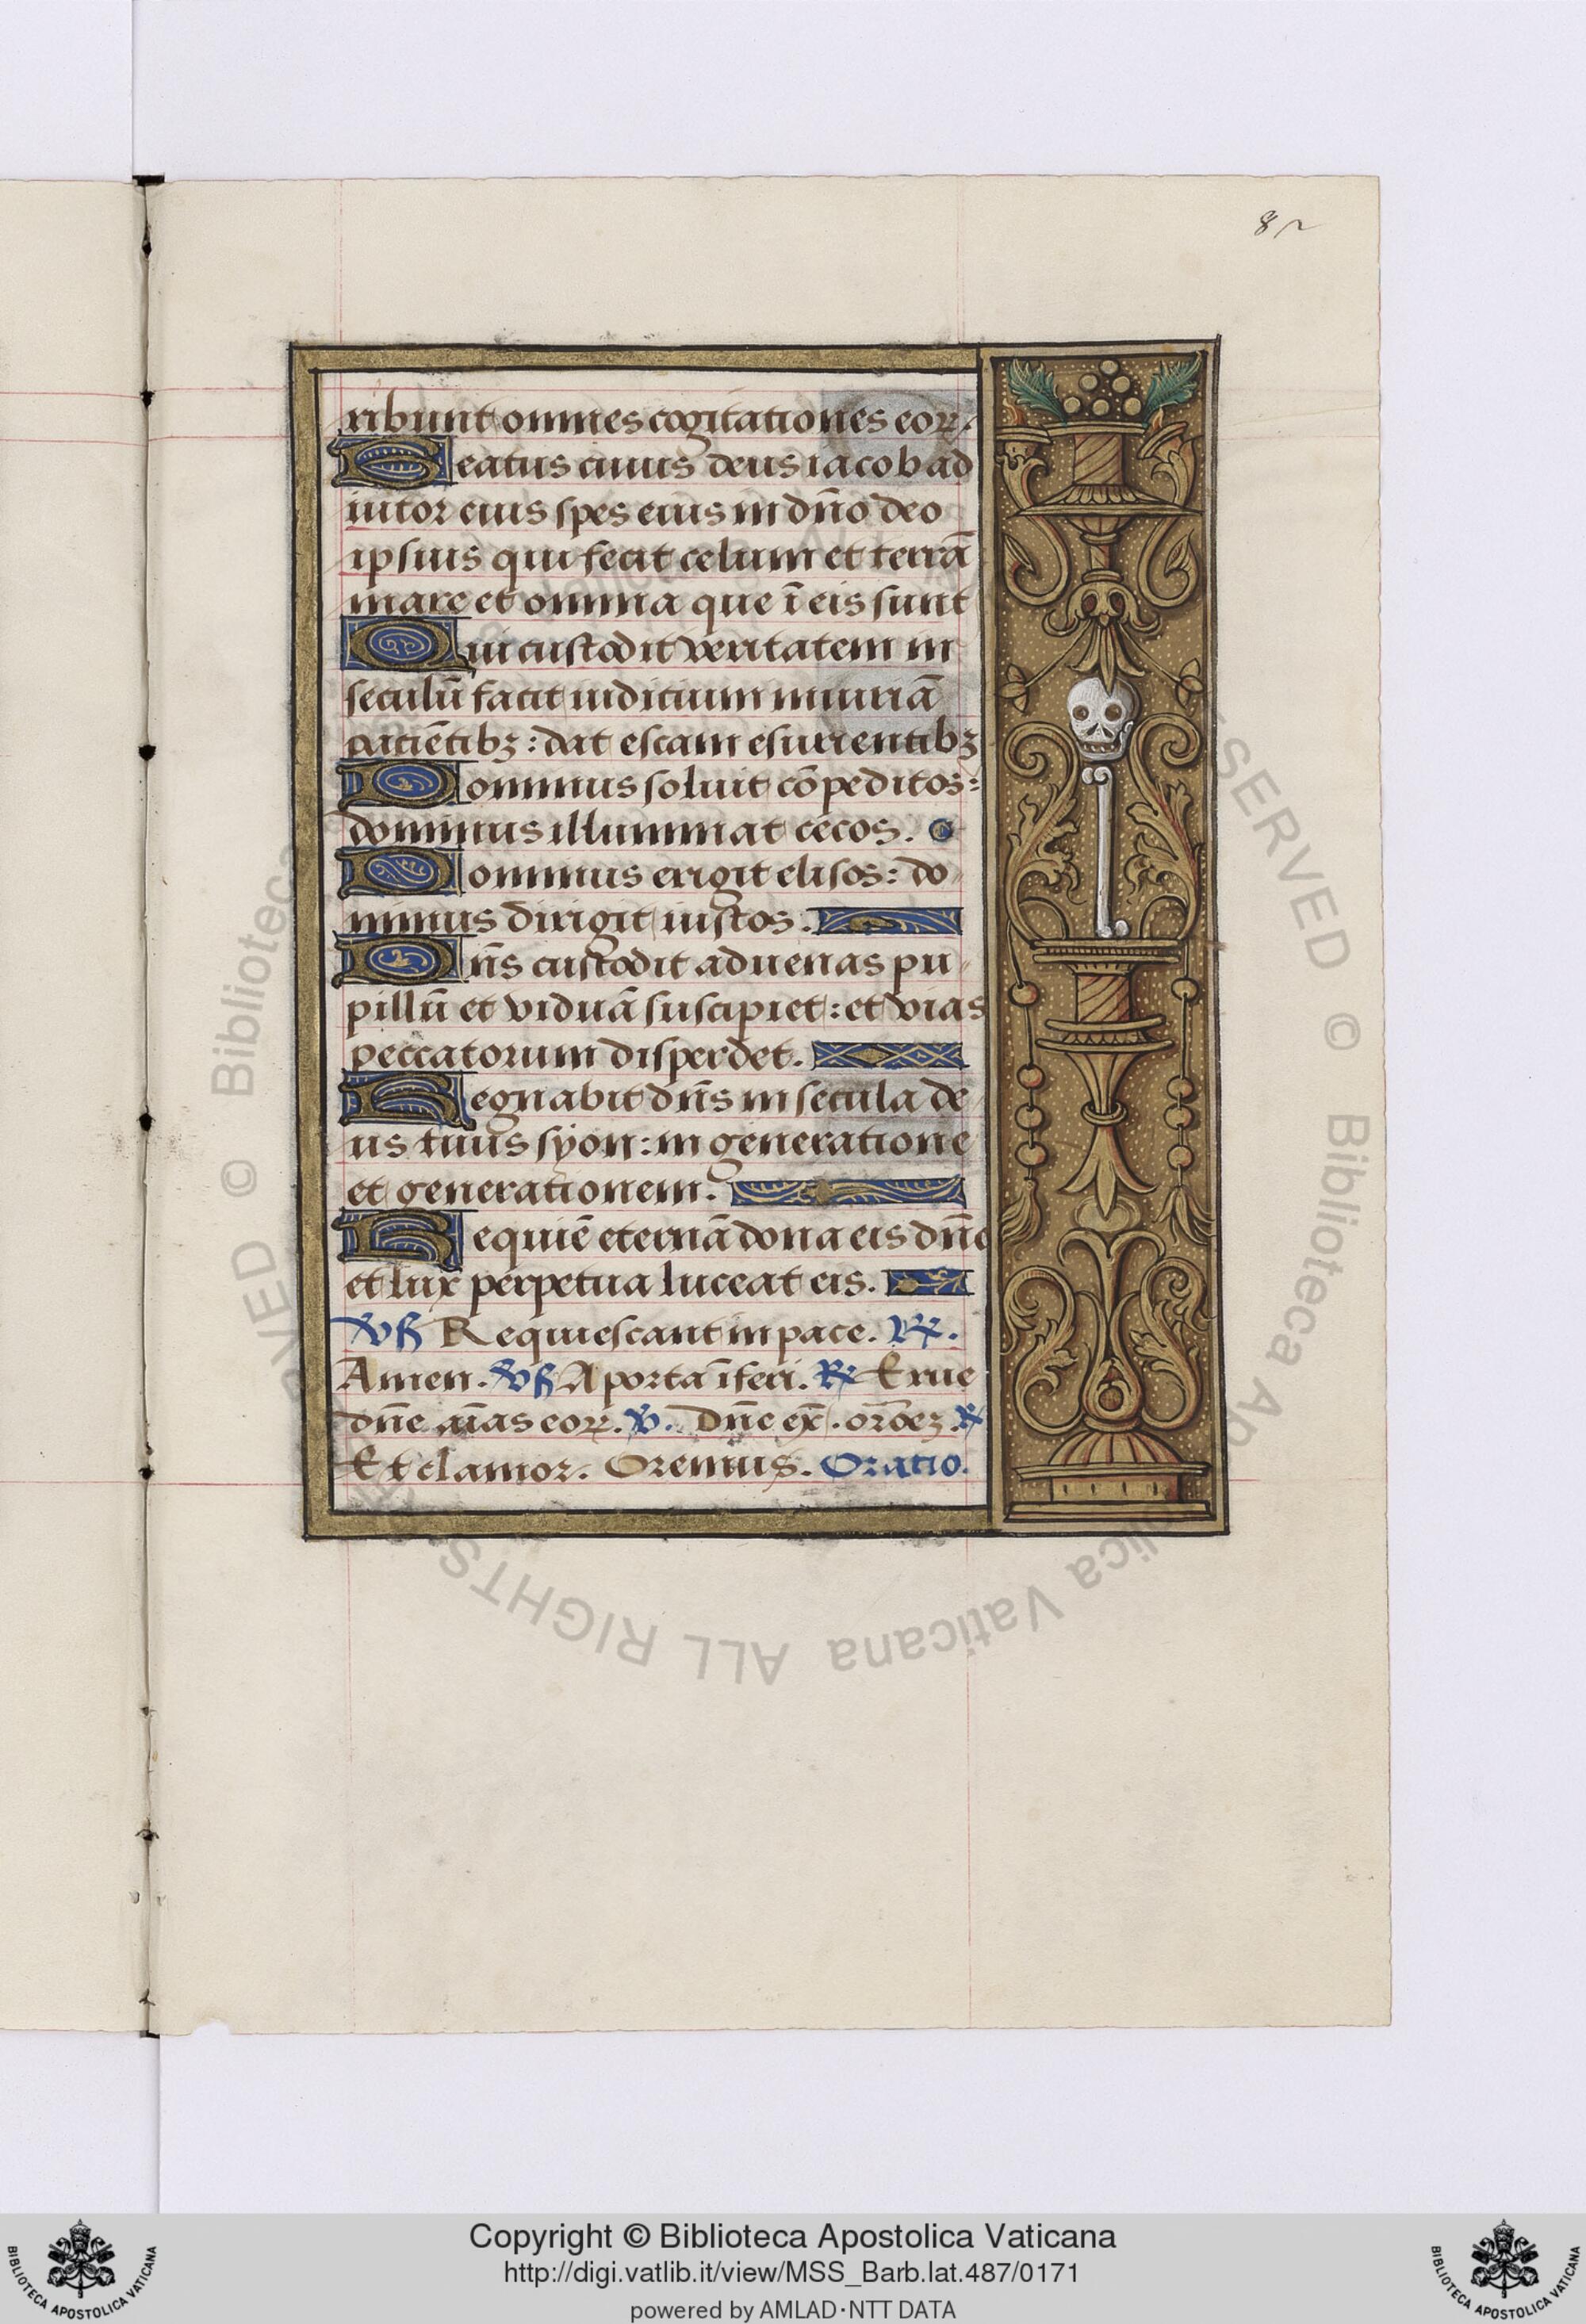 82
ribunt omnes cogitationes eoꝝ.
Beatus cuius deus iacob ad
iutor eius spes eius in dño deo
ipsius qui fecit celum et terrã
mare et omnia que ĩ eis sunt
Qui custodit veritatem in
seculũ facit iudicium iniuriã
paciẽtibꝫ: dat escam esurientibꝫ
Dominus soluit cõpeditos:
dominus illuminat cecos.
Dominus erigit elisos: do
minus dirigit iustos.
Dñs custodit aduenas pu
pillũ et viduã suscipiet: et vias
peccatorum disperdet.
Regnabit dñs in secula de
us tuus syon: in generatione
et generationem.
Requiẽ eternã dona eis dñe
et lux perpetua luceat eis.
℣ Requiescant in pace. ℟.
Amen. ℣ A porta ĩferi. ℟ Erue
dñe aĩas eoꝝ. ℣. Dñe ex̃. orõeꝫ. ℟
Et clamor. Oremus. Oratio.
© Biblioteca Apostolica Vaticana ALL RIGHTS RESERVED © Biblioteca Apostolica Vaticana ALL RIGHTS RESERVED
Copyright © Biblioteca Apostolica Vaticana
http://digi.vatlib.it/view/MSS_Barb.lat.487/0171
powered by AMLAD·NTT DATA
BIBLIOTECA APOSTOLICA VATICANA
BIBLIOTECA APOSTOLICA VATICANA